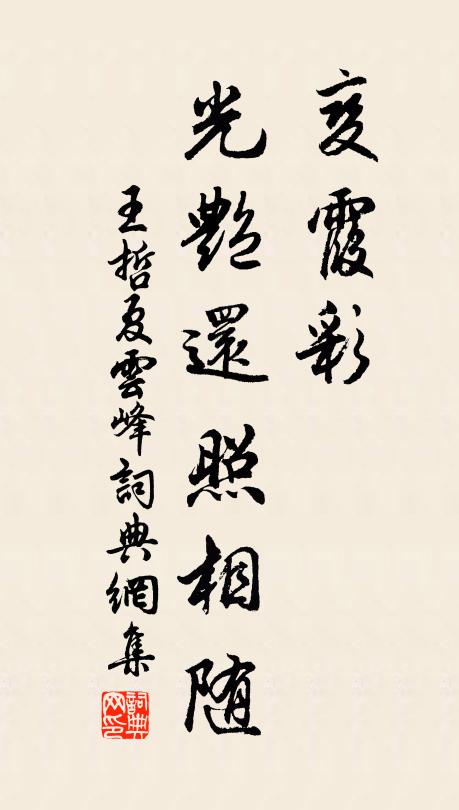 变霞彩
光艷還照相随
王哲夏雲峰詞典網集
詞典网印